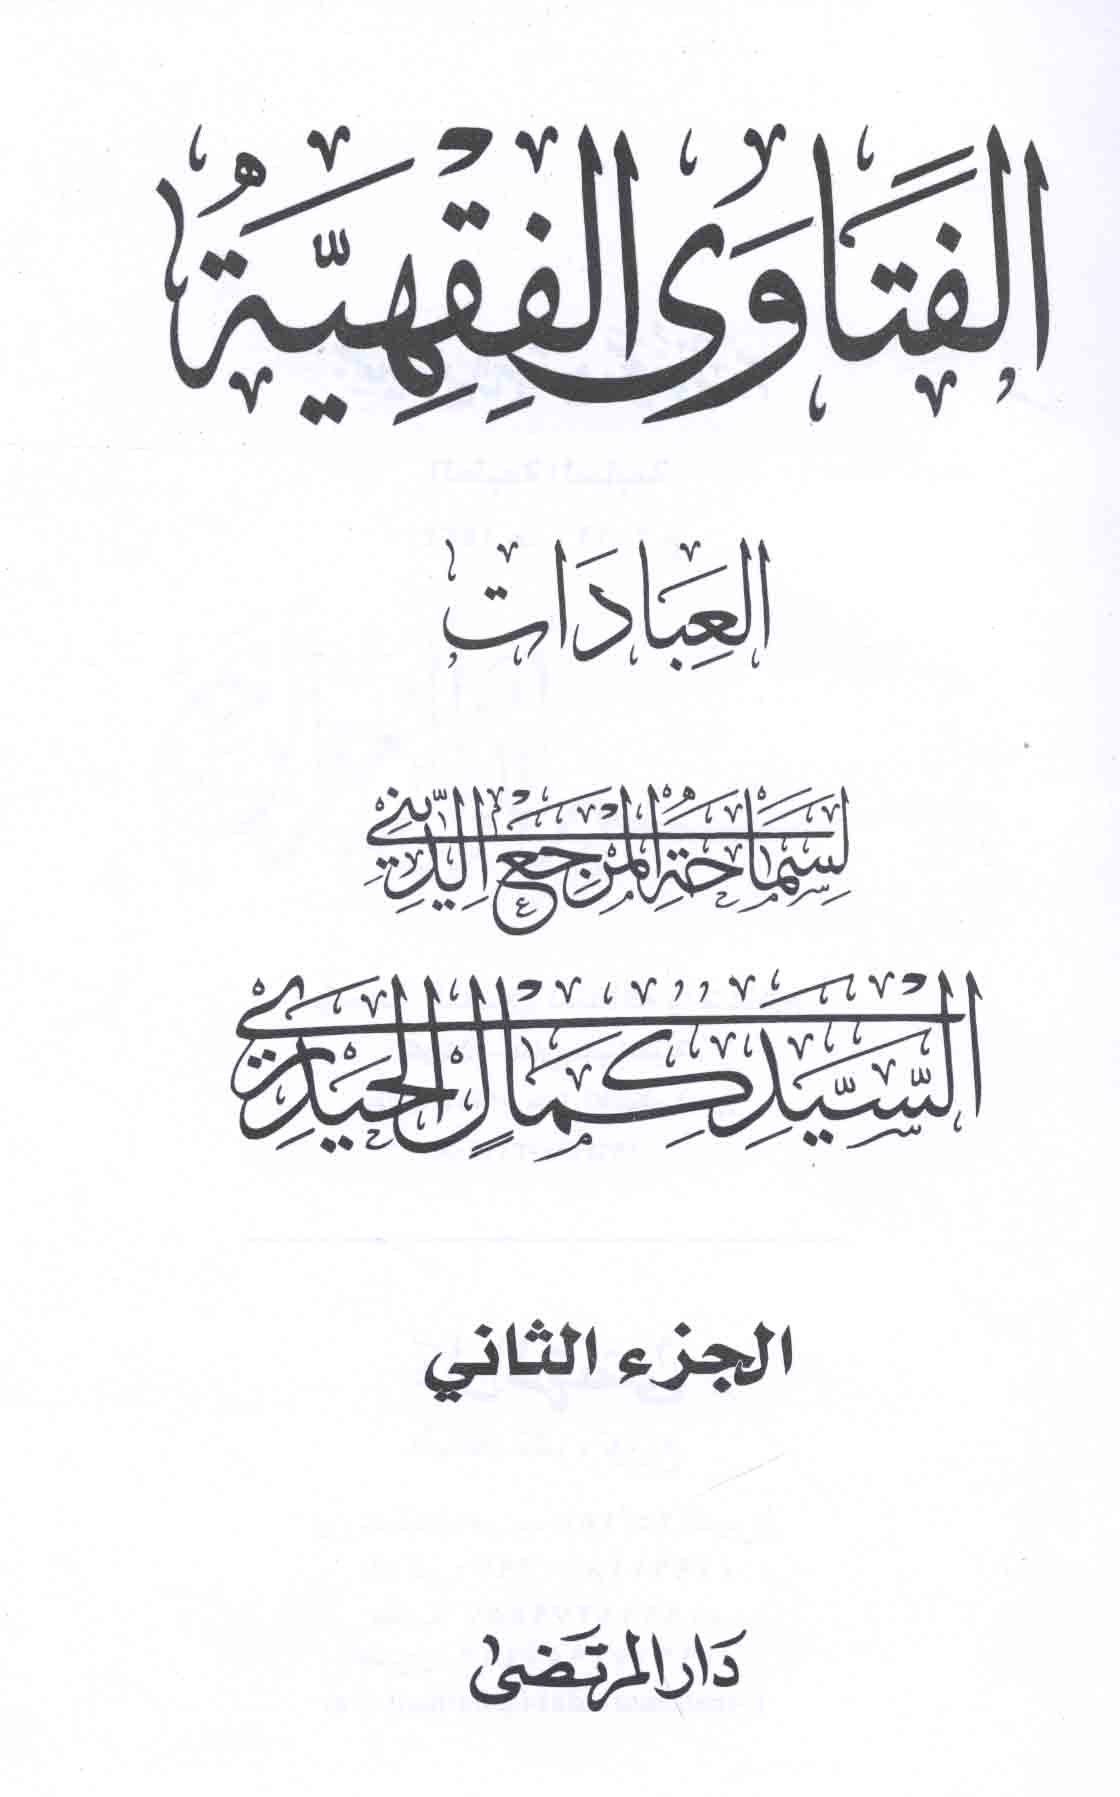 الفتاوى الفقهية
العبادات
لسماحة المرجع الديني
السيد كمال الحيدري
الجزء الثاني
دار المرتضى